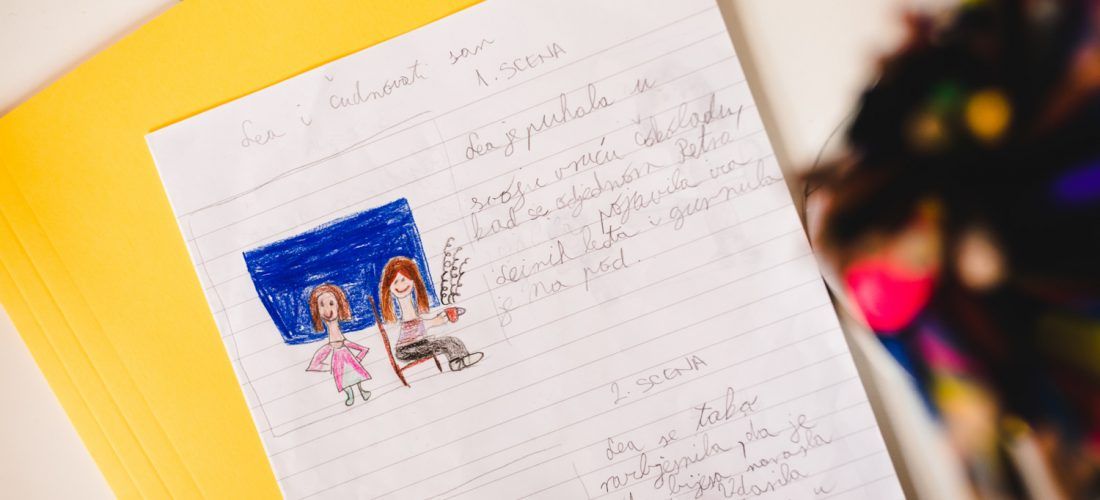 Lea i čudnovati san
1. SCENA
Lea je puhala u
svoju vruću čokoladu,
kad se odjednom Petra
pojavila iza
Leinih leđa i gurnula
je na pod.
2. SCENA
Lea se tako
razbjesnila, da je
od bijesa narasla
Udarila
u